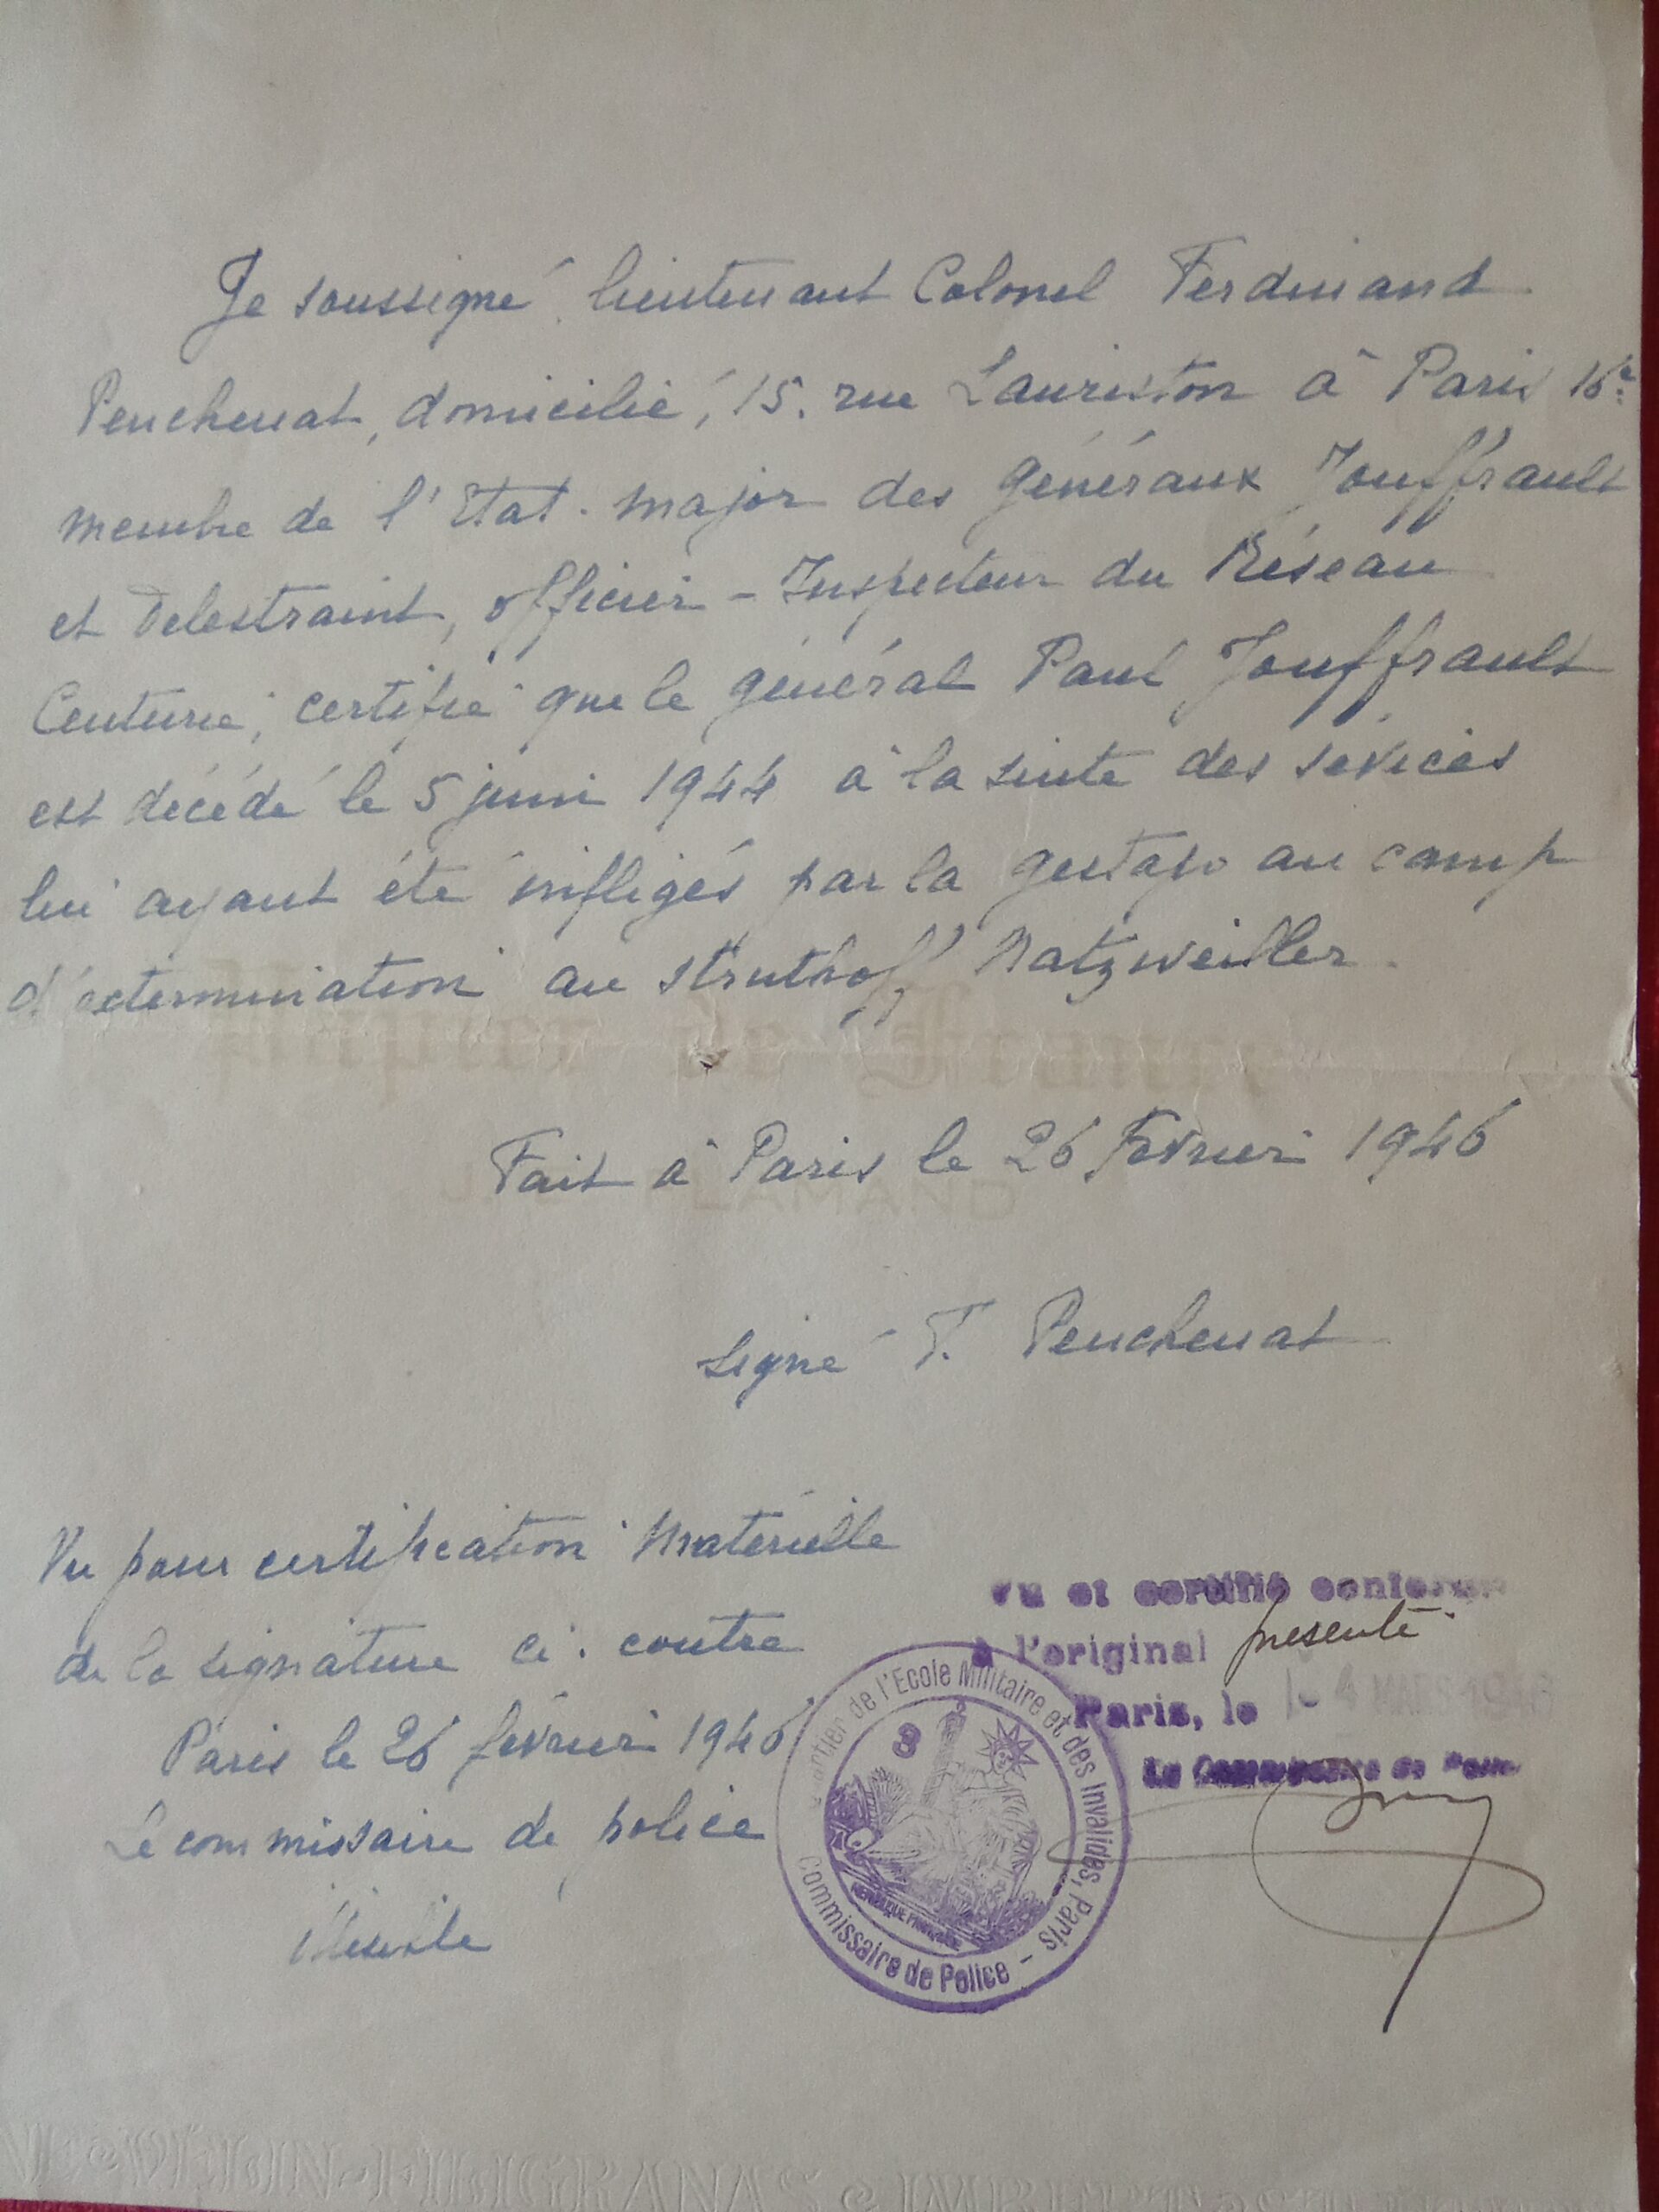 Je soussigné lieutenant Colonel Ferdinand
Peuchenat, domicilié, 15. rue Lauriston à Paris 16e
membre de l'Etat. major des généraux Jouffrault
et Delestraint, officier - Inspecteur du Réseau
Centurie, certifie que le général Paul Jouffrault
est décédé le 5 juin 1944 à la suite des sévices
lui ayant été infligés par la gestapo au camp
d'extermination au Struthoff Natzweiller.
Papier de France
LAMAND
Fait à Paris le 26 Février 1946
Signé F. Peuchenat
Vu pour certification Matérielle
de la signature ci. contre
Paris le 26 février 1946
Le commissaire de police
Illisible
Vu et certifié conforme
à l'original présenté
Paris, le 4 MARS 1946
Le Commissaire de Police
Quartier de l'Ecole Militaire et des Invalides, Paris -
Commissaire de Police
3
REPUBLIQUE FRANÇAISE